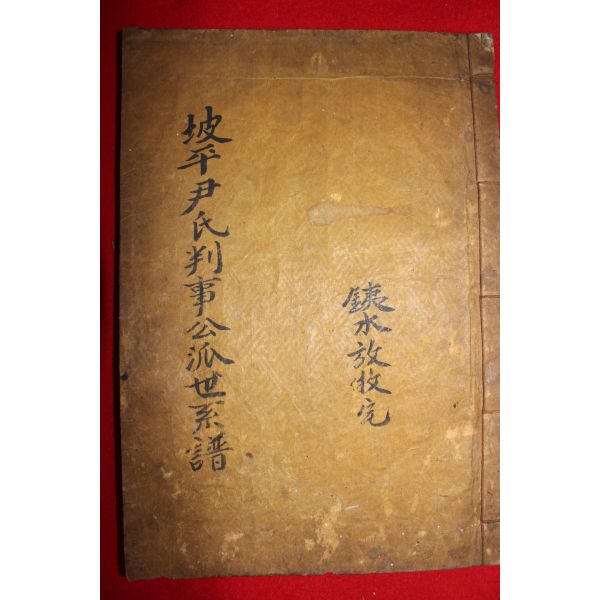 鐵水放牧宅
坡平尹氏判事公派世系譜